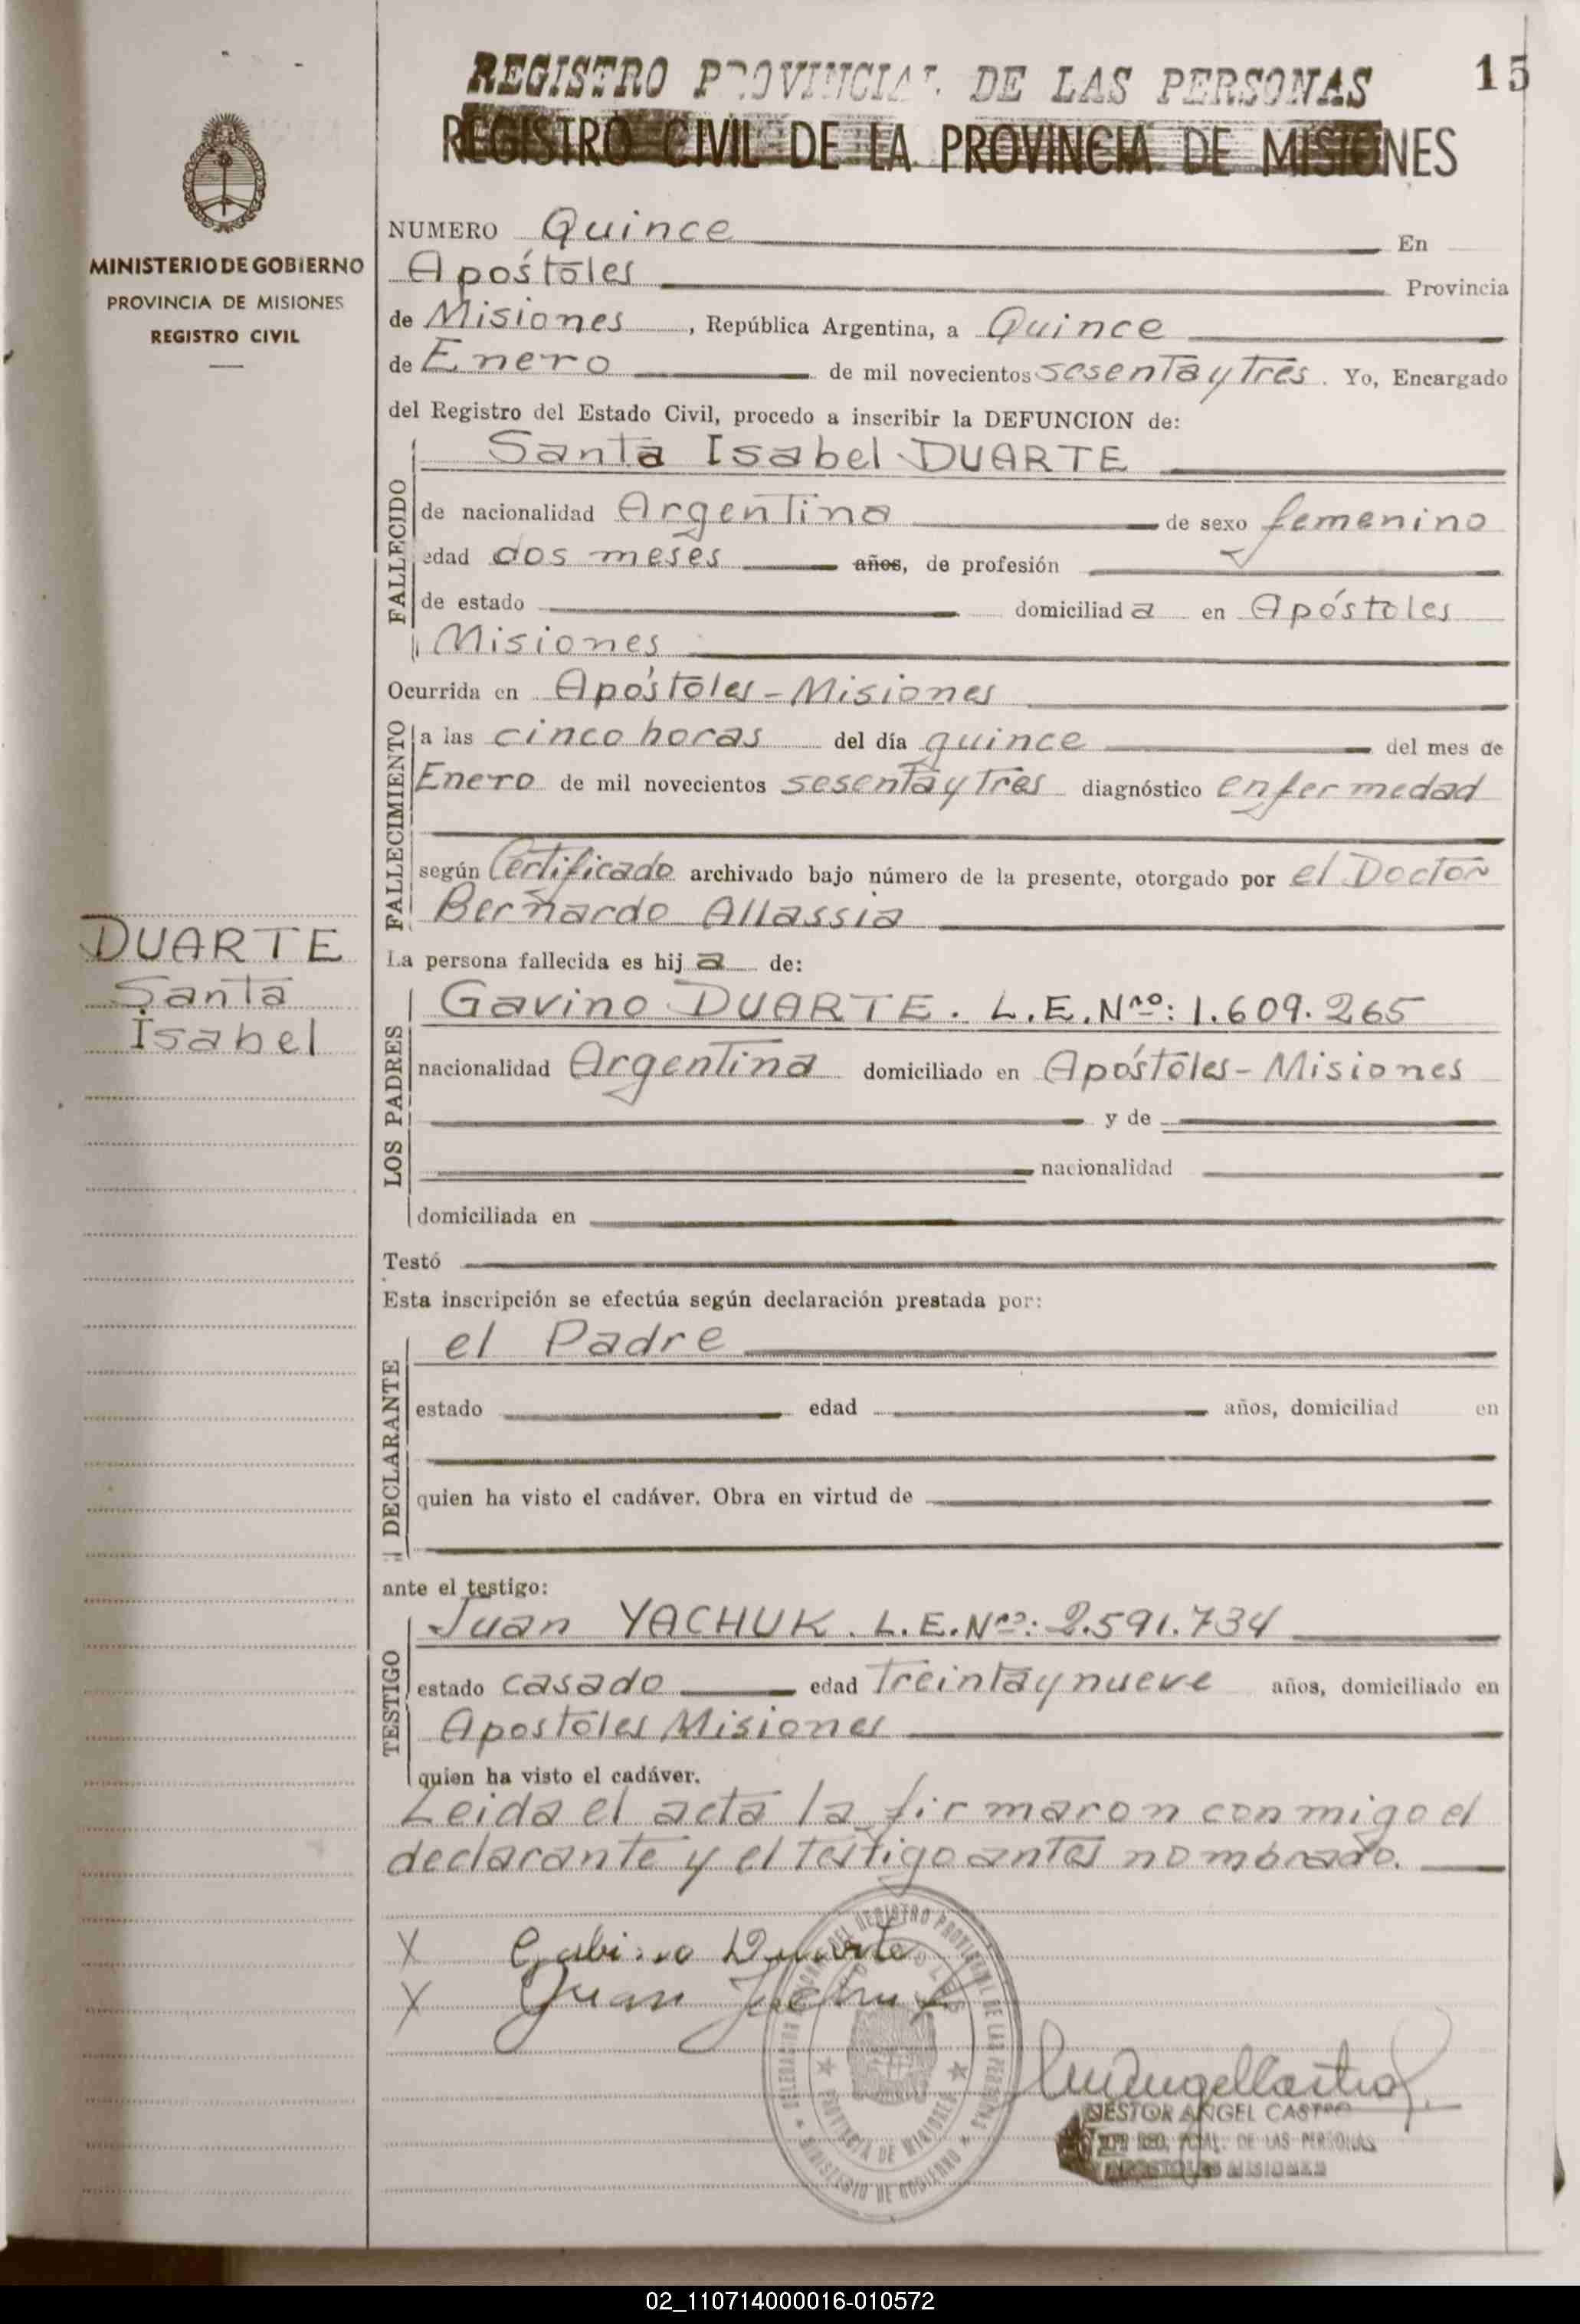 REGISTRO PROVINCIAL DE LAS PERSONAS
15
REGISTRO CIVIL DE LA PROVINCIA DE MISIONES
MINISTERIO DE GOBIERNO
PROVINCIA DE MISIONES
REGISTRO CIVIL
NUMERO Quince En
Apóstoles Provincia
de Misiones, República Argentina, a Quince
de Enero de mil novecientos sesenta y tres. Yo, Encargado
del Registro del Estado Civil, procedo a inscribir la DEFUNCION de:
FALLECIDO
Santa Isabel DUARTE
de nacionalidad Argentina de sexo femenino
edad dos meses años, de profesión
de estado domiciliad a en Apóstoles
Misiones
Ocurrida en Apóstoles - Misiones
FALLECIMIENTO
a las cinco horas del día quince del mes de
Enero de mil novecientos sesenta y tres diagnóstico enfermedad
según Certificado archivado bajo número de la presente, otorgado por el Doctor
Bernardo Allassia
DUARTE
Santa
Isabel
La persona fallecida es hij a de:
LOS PADRES
Gavino DUARTE. L.E. Nro: 1.609.265
nacionalidad Argentina domiciliado en Apóstoles - Misiones
y de
nacionalidad
domiciliada en
Testó
Esta inscripción se efectúa según declaración prestada por:
DECLARANTE
el Padre
estado edad años, domiciliad en
quien ha visto el cadáver. Obra en virtud de
ante el testigo:
TESTIGO
Juan YACHUK. L.E. Nro: 2.591.734
estado casado edad treinta y nueve años, domiciliado en
Apostoles Misiones
quien ha visto el cadáver.
Leida el acta la firmaron conmigo el
declarante y el testigo antes nombrado.
X Gabino Duarte
X Juan
DELEGACION DEL REGISTRO PROVINCIAL DE LAS PERSONAS
PROVINCIA DE MISIONES
MINISTERIO DE GOBIERNO
NESTOR ANGEL CASTRO
REG. PCIAL. DE LAS PERSONAS
APOSTOLES MISIONES
02_110714000016-010572